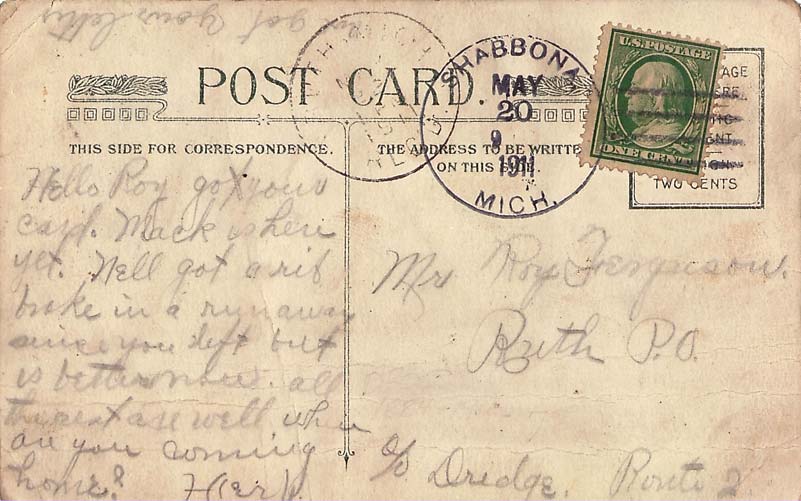 got your letter
POST CARD.
SHABBONA
MAY
20
9
1911
MICH.
RUTH MICH.
REC'D
U.S. POSTAGE
ONE CENT
TWO CENTS
THIS SIDE FOR CORRESPONDENCE.
THE ADDRESS TO BE WRITTEN
ON THIS SIDE.
Hello Roy got your
card. Mack is here
yet. Nell got a rib
broke in a runaway
since you left but
is better now. all
the rest are well when
are you comming
home?
Mr Roy Ferguson.
Ruth P.O.
c/o Dredge. Route 2